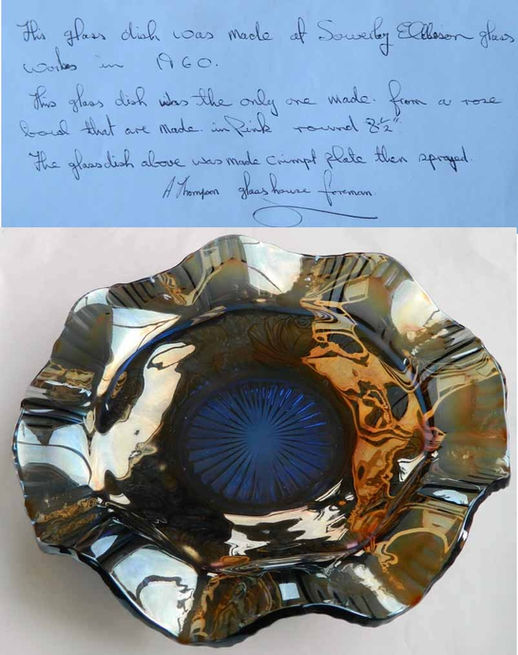 This glass dish was made at Sowerby Ellison glass
works in 1960.
This glass dish was the only one made. from a rose
bowl that are made. in Pink round 8½".
The glass dish above was made crimpt plate then sprayed.
A Thompson glass house foreman